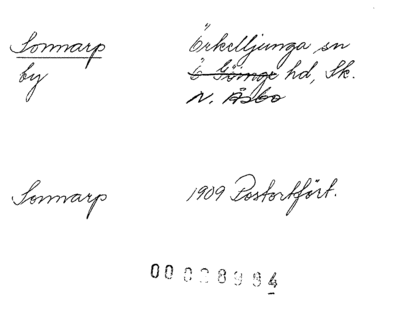 Sonnarp Örkelljunga sn
by Ö Göinge hd, Sk.
N. Åsbo
Sonnarp 1909 Postortfört.